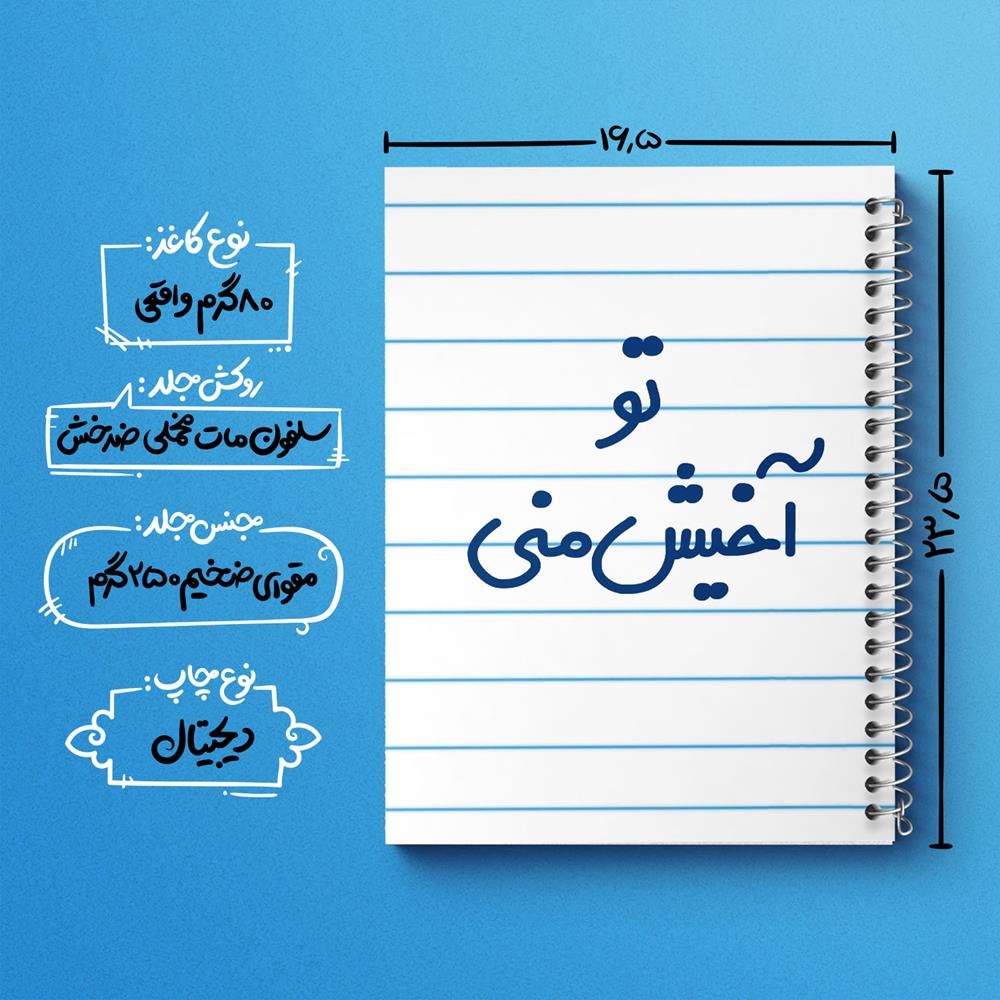 ۱۶٫۵
۲۳٫۵
تو
آخیش منی
نوع کاغذ:
۸۰گرم واقعی
روکش جلد:
سلفون مات مخملی ضدخش
جنس جلد:
مقوای ضخیم ۲۵۰گرم
نوع چاپ:
دیجیتال